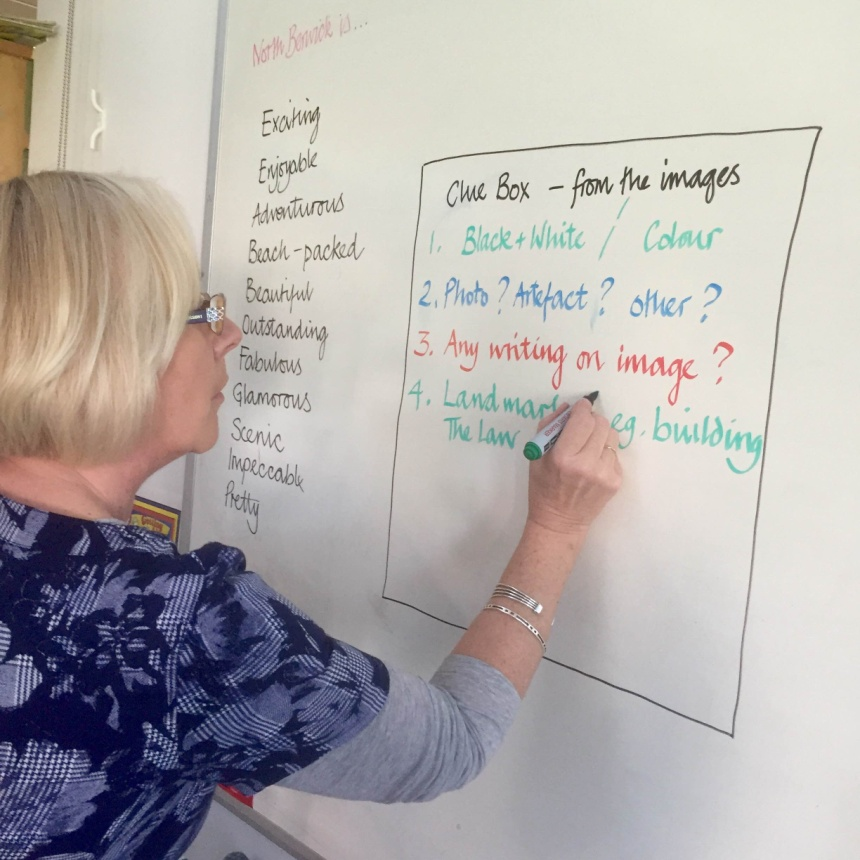 North Berwick is...
Exciting
Enjoyable
Adventurous
Beach-packed
Beautiful
Outstanding
Fabulous
Glamorous
Scenic
Impeccable
Pretty
Clue Box - from the images
1. Black + White / Colour
2. Photo? Artefact? other?
3. Any writing on image?
4. Landmark eg. building
The Law